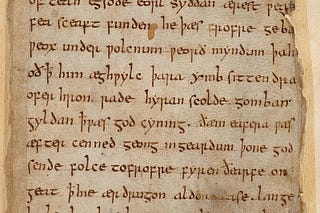 of teah egsode eorl syððan ærest pearð
fea sceaft funden he þæs frofre geba
peox under polcnum peorð myndum þah
oð þ him æghpylc þara ymb sittendra
ofer hron rade hyran scolde gomban
gyldan þ pæs god cyning. ðæm eafera pæs
æfter cenned geong in geardum þone god
sende folce tofrofre fyren ðearfe on
geat þ hie ær drugon aldor ase. lange